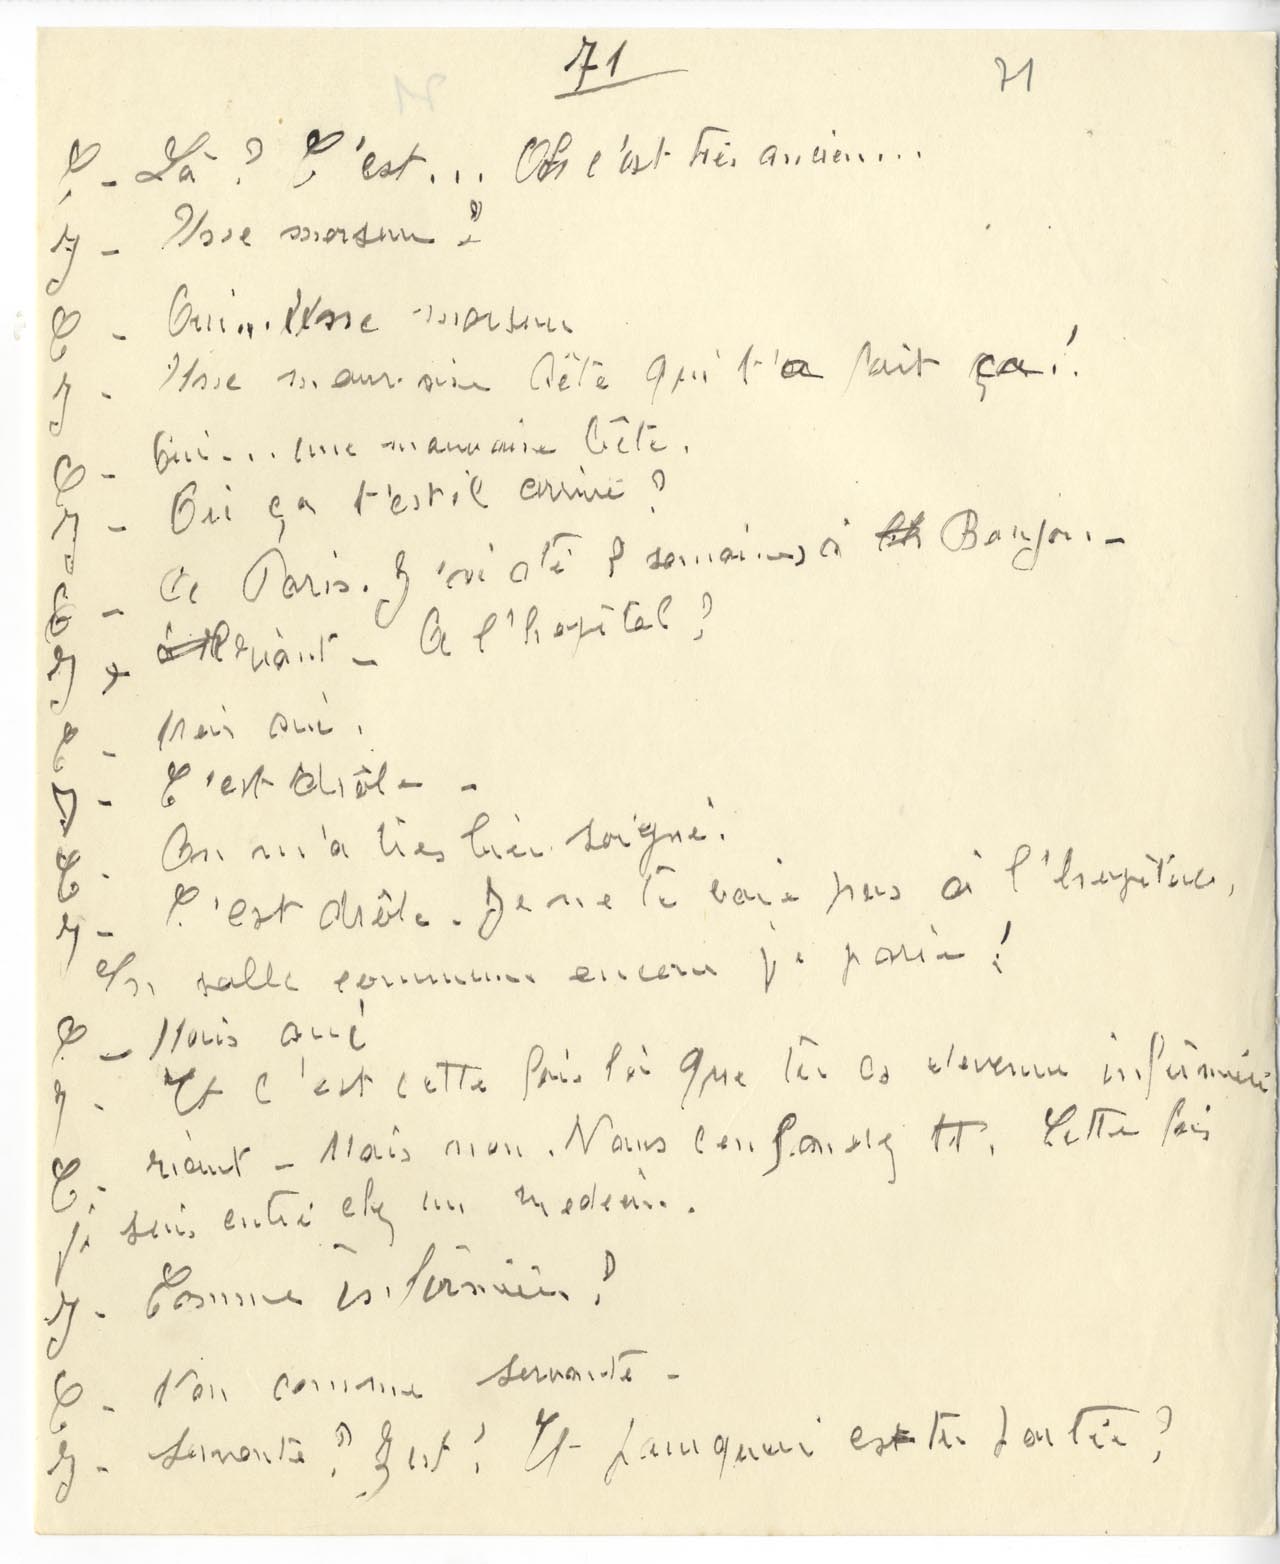 71 71
C - Là ? C'est... Oh c'est très ancien...
J - Une morsure ?
C - Oui... Une morsure
J - Une mauvaise bête qui t'a fait ça !
C - Oui... une mauvaise bête.
J - Où ça t'est il arrivé ?
C - A Paris. J'ai été semaines à Beaujon -
J - riant - A l'hôpital ?
C - Mais oui.
J - C'est drôle -
C - On m'a très bien soigné.
J - C'est drôle. Je ne te vois pas à l'hôpital,
En salle commune encore je parie !
C - Mais oui
J - Et c'est cette fois là que tu es devenue infirmière
C - riant - Mais non. Vous confondez tt. Cette fois
je suis entré chez un medecin.
J - Comme infirmière ?
C - Non comme servante -
J - Servante ? Zut ! Et pourquoi es tu partie ?